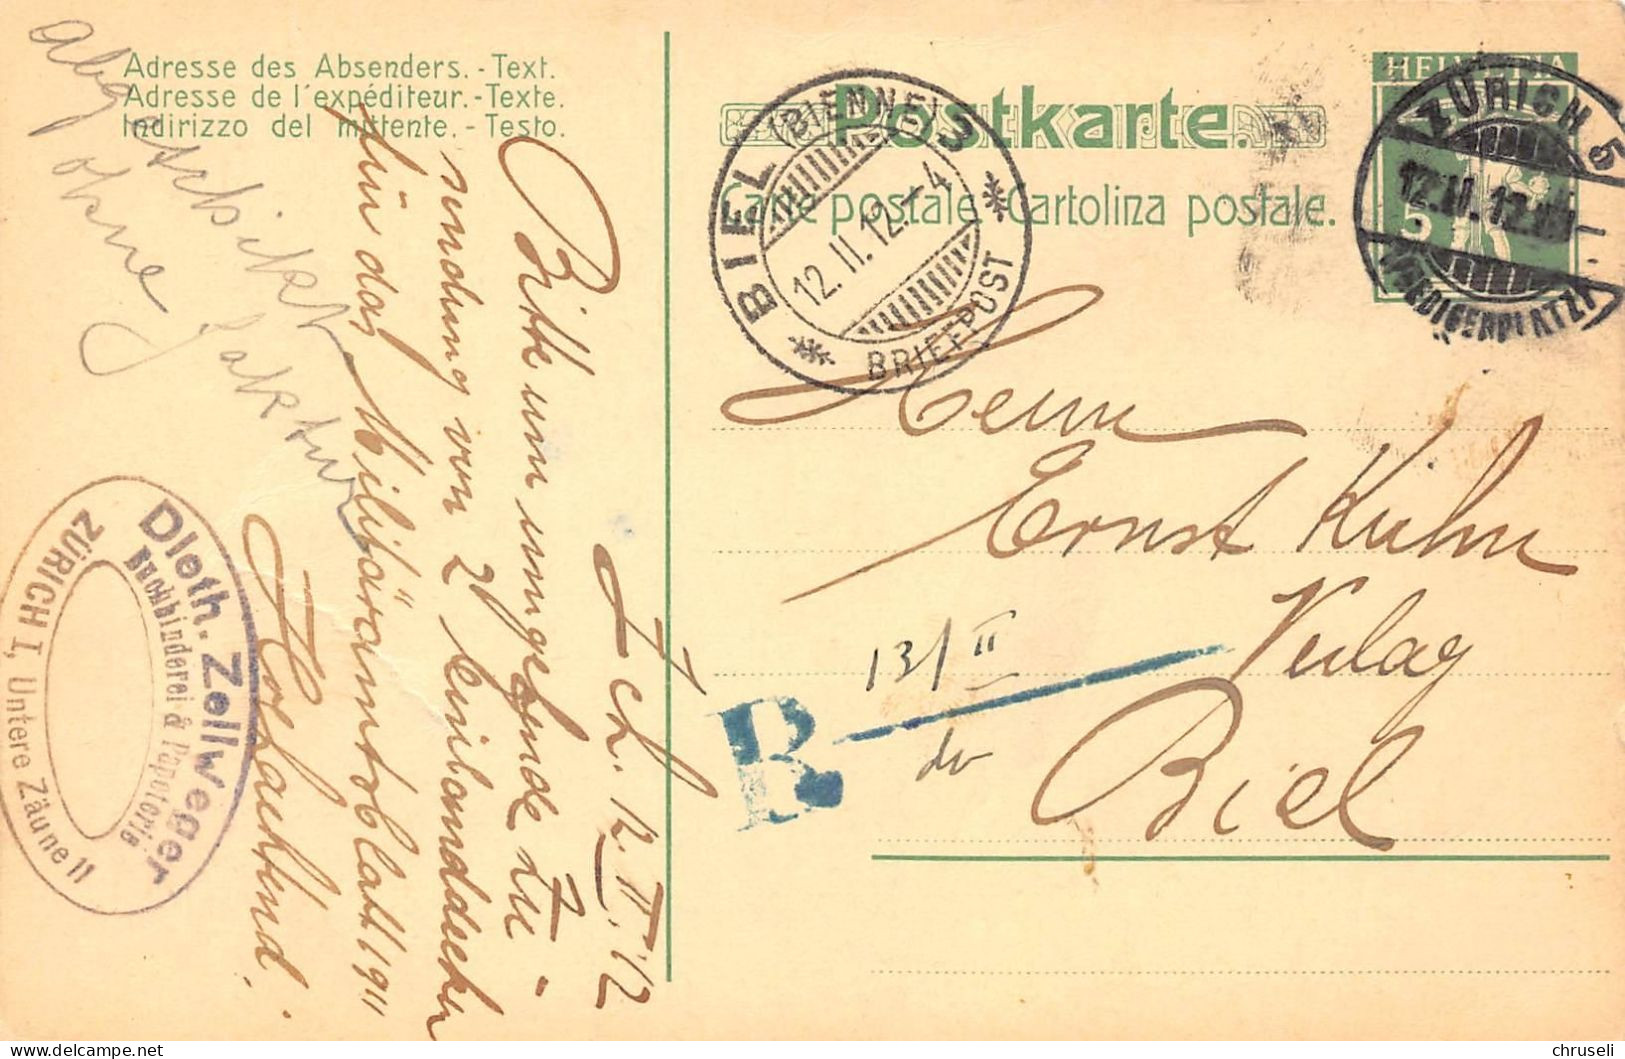 Adresse des Absenders. - Text.
Adresse de l'expéditeur. - Texte.
Indirizzo del mittente. - Testo.
Abgeschickt
ohne Faktur
Zch. 12. II. 12
Bitte um umgehende Zu-
sendung von 2 Leinbanddecken
für das Militäramtsblatt 1911
Hochachtend.
Dieth. Zellweger
Buchbinderei & Papeterie
ZÜRICH I, Untere Zäune 11
Postkarte.
Carte postale - Cartolina postale.
BIEL (BIENNE) 3
12. II. 12. - 4
BRIEFPOST
HELVETIA
5
ZÜRICH 5
12. II. 12.
Herrn
Ernst Kuhn
Verlag
Biel
13/II
R
chruseli